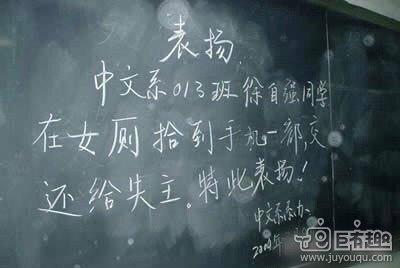 表扬
中文系013班徐自强同学
在女厕拾到手机一部,交
还给失主。特此表扬!
中文系系办
2004年
巨有趣
www.juyouqu.com